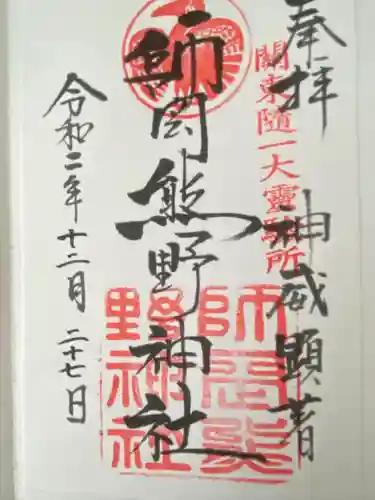 奉拝
神威顕著
關東随一大霊験所
師岡熊野神社
師岡熊野神社
令和二年十二月二十七日